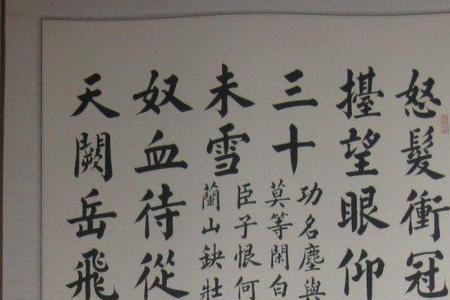 怒髮衝冠
擡望眼仰
三十
功名塵與
莫等閑白
未雪
臣子恨何
蘭山缺壯
奴血待從
天闕岳飛